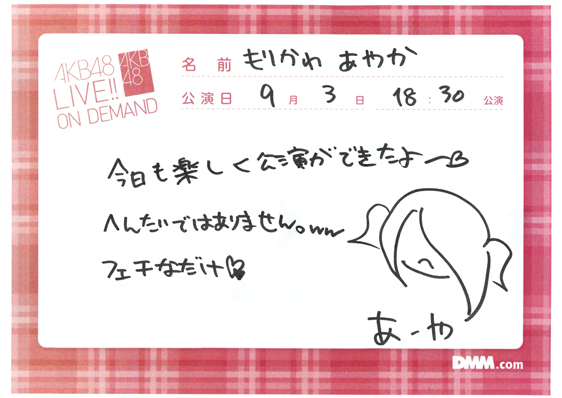 AKB48
LIVE!!
ON DEMAND
AKB
48
名前 もりかわ あやか
公演日 9月 3日 18:30 公演
今日も楽しく公演ができたよー
へんたいではありません。ww
フェチなだけ♡
あーや
DMM.com